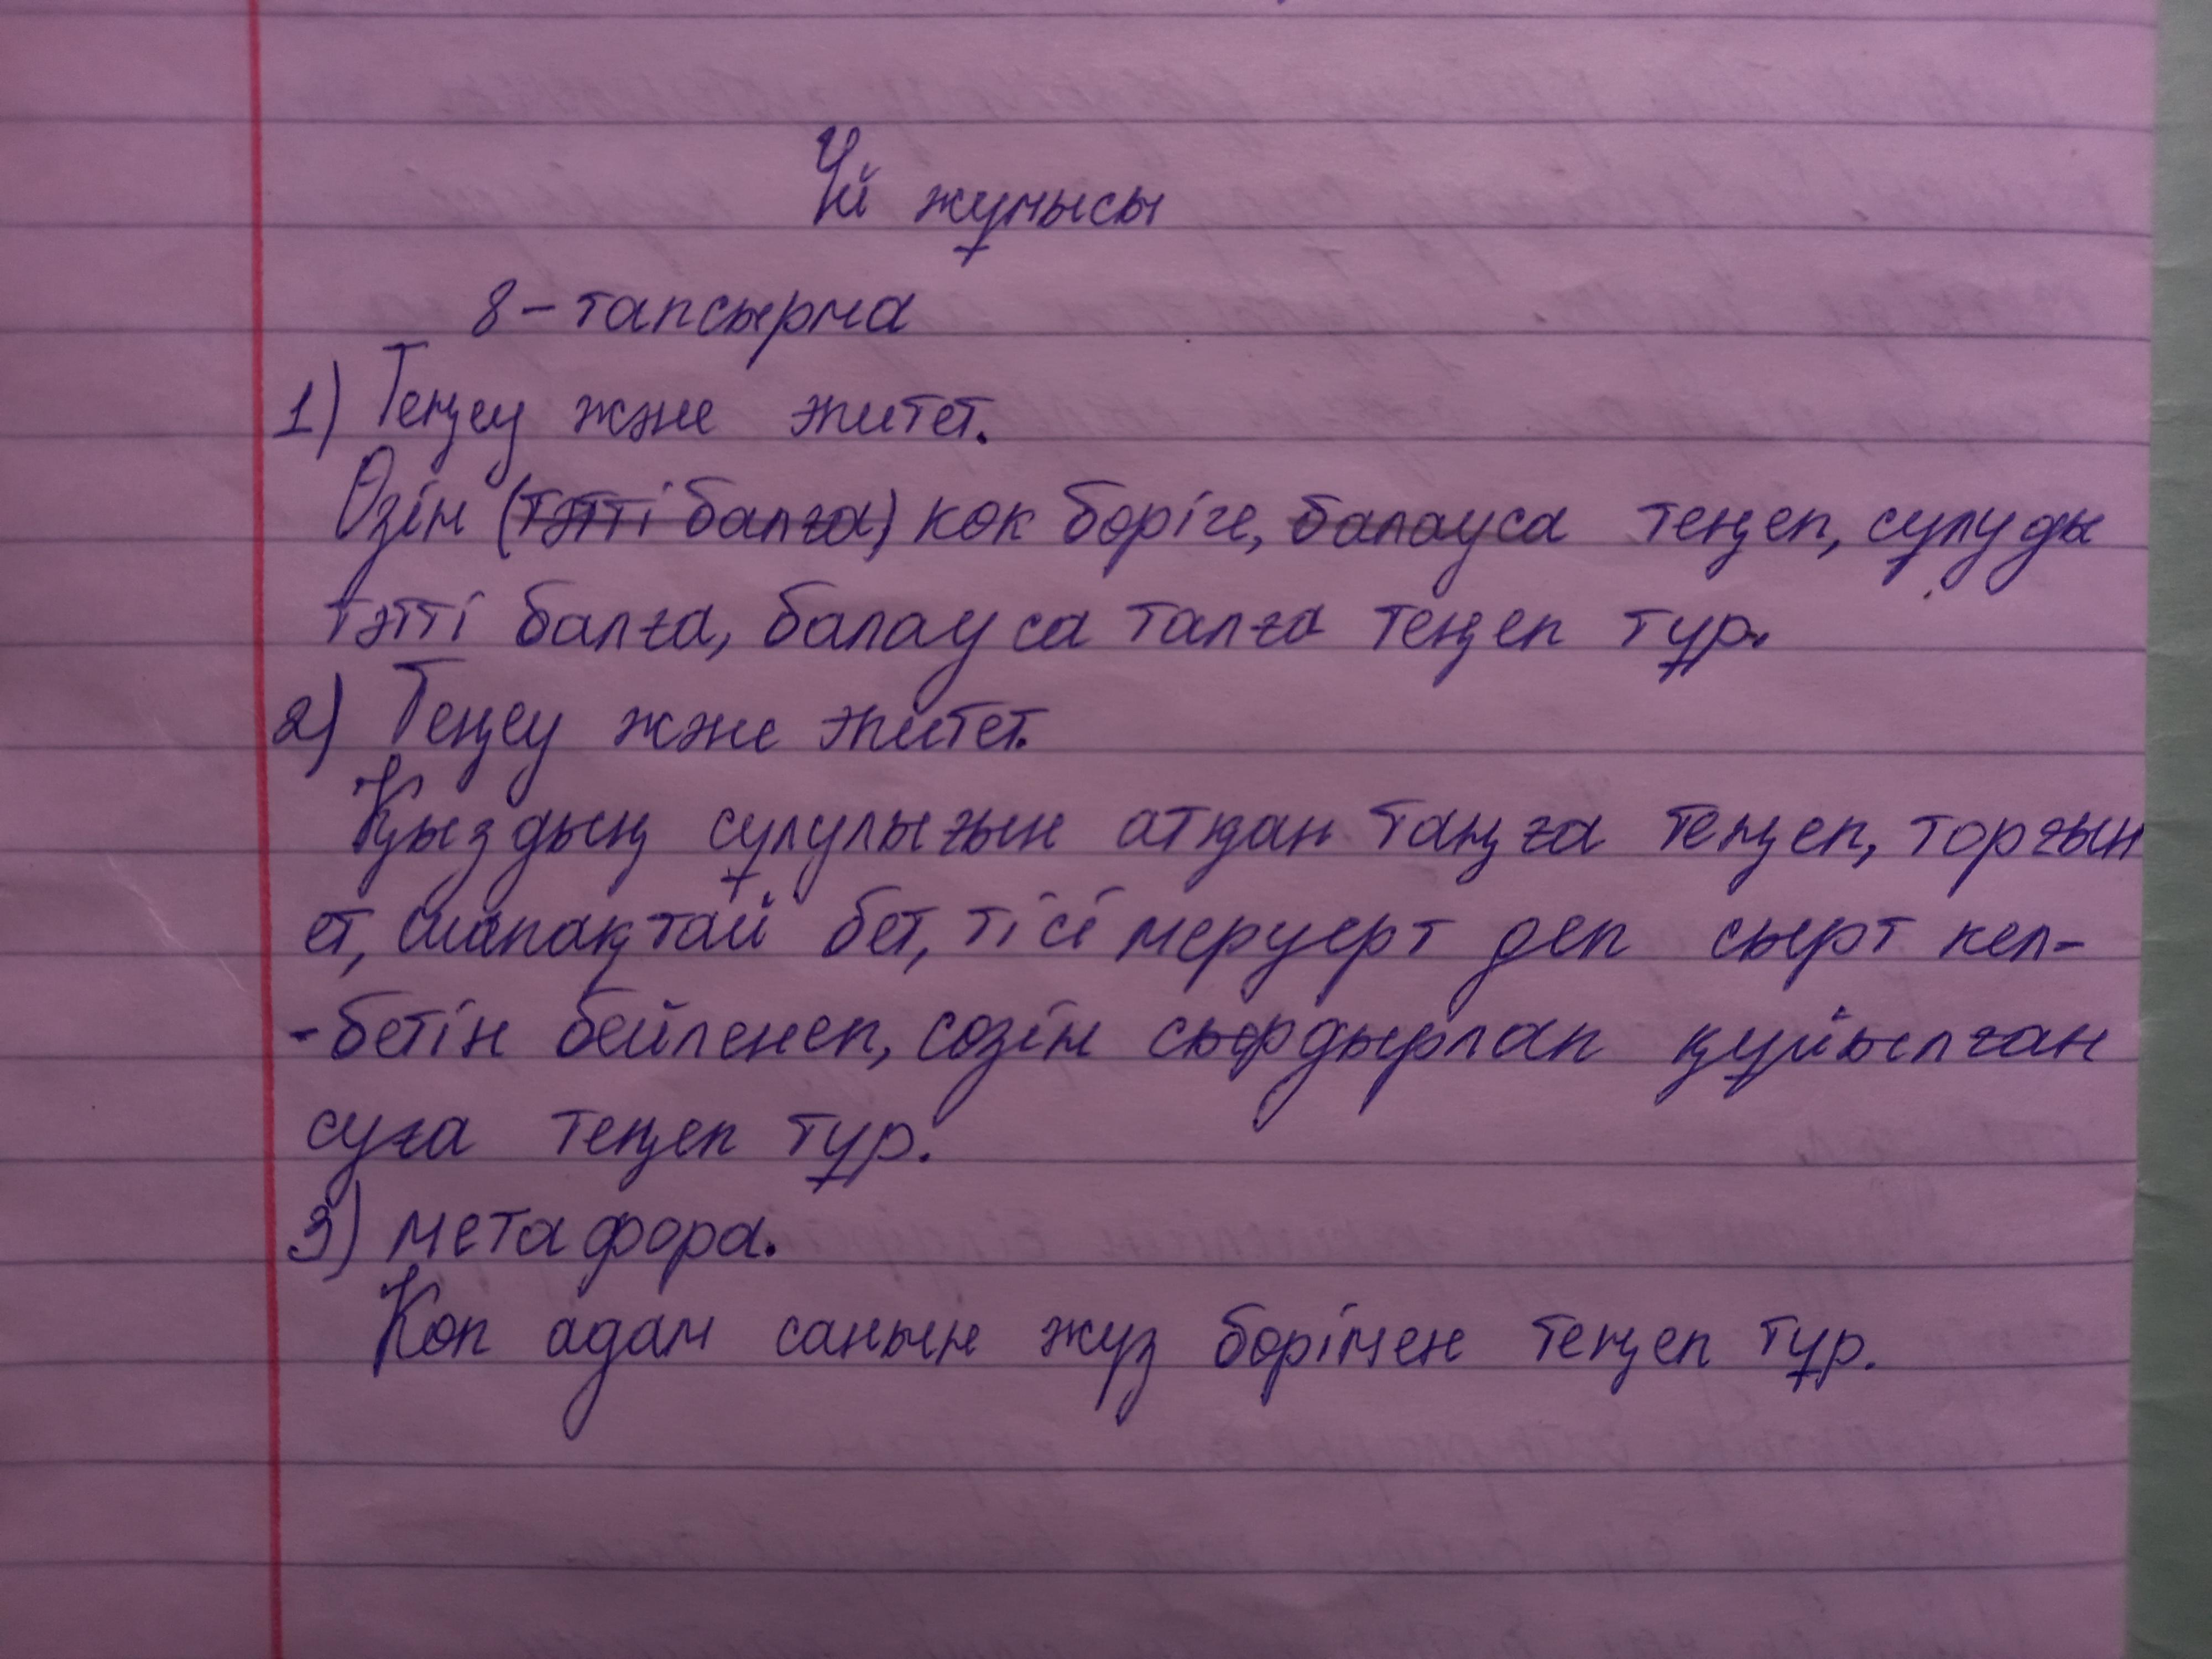 Үй жұмысы
8-тапсырма
1) Теңеу және эпитет.
Өзін (тәтті балға) көк бөріге, балауса теңеп, сұлуды
тәтті балға, балауса талға теңеп тұр.
2) Теңеу және эпитет.
Қыздың сұлулығын атқан таңға теңеп, торғын
ет, шапақтай бет, тісі меруерт деп сырт кел-
-бетін бейленеп, сөзін сырдырлап құйылған
суға теңеп тұр.
3) метафора.
Көп адам санын жүз бөрімен теңеп тұр.